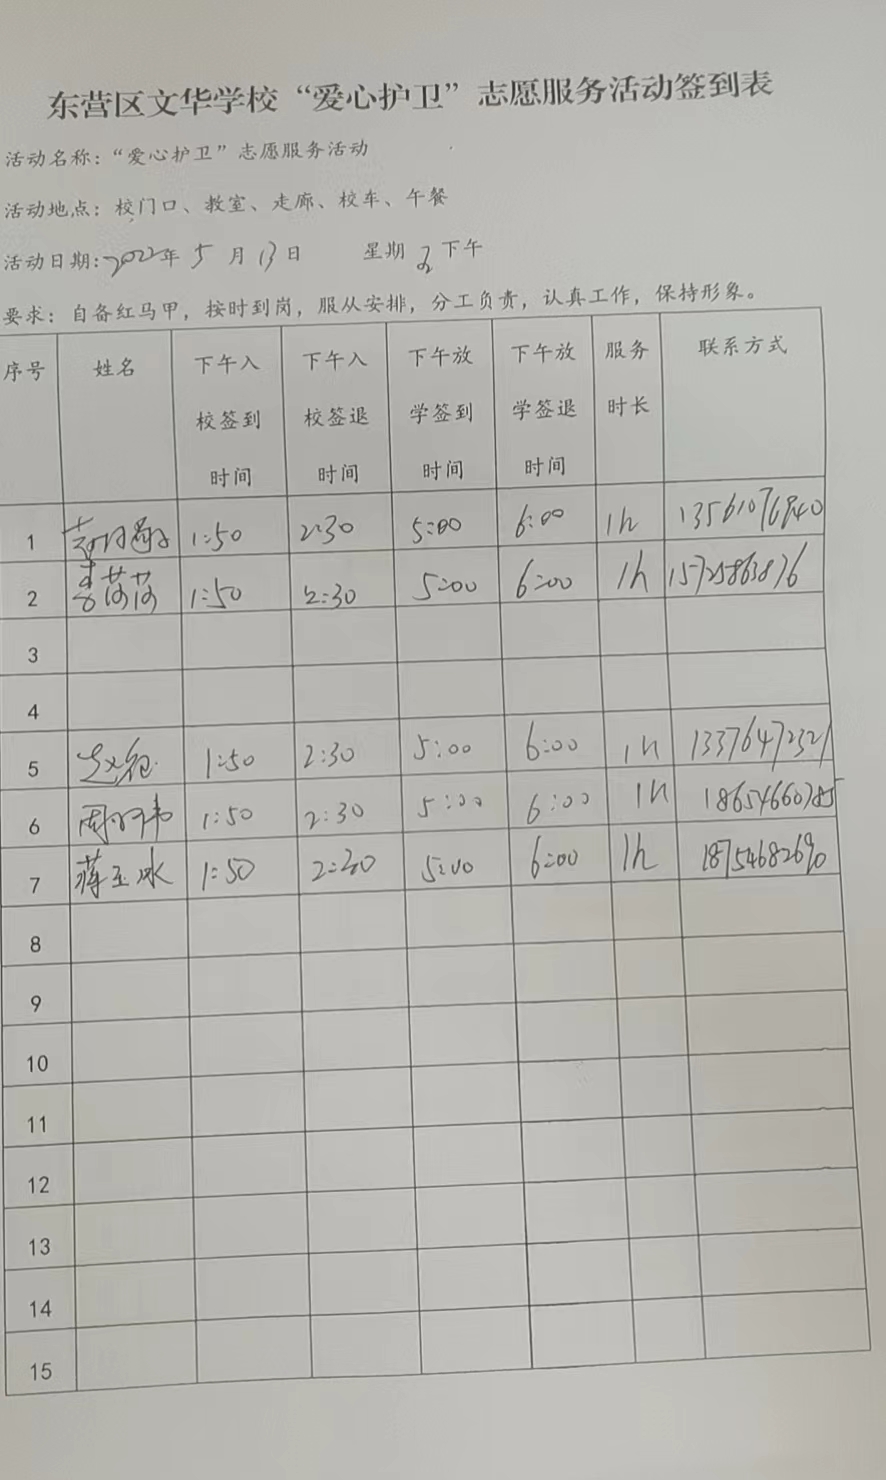 东营区文华学校“爱心护卫”志愿服务活动签到表
活动名称：“爱心护卫”志愿服务活动
活动地点：校门口、教室、走廊、校车、午餐
活动日期：2022年 5 月 13 日 星期 五 下午
要求：自备红马甲，按时到岗，服从安排，分工负责，认真工作，保持形象。
序号 姓名 下午入校签到时间 下午入校签退时间 下午放学签到时间 下午放学签退时间 服务时长 联系方式
1 1:50 2:30 5:00 6:00 1h
2 李莎莎 1:50 2:30 5:00 6:00 1h 15725863876
3
4
5 1:50 2:30 5:00 6:00 1h 13376472321
6 1:50 2:30 5:00 6:00 1h 18654660785
7 蒋玉冰 1:50 2:30 5:00 6:00 1h 18754682690
8
9
10
11
12
13
14
15